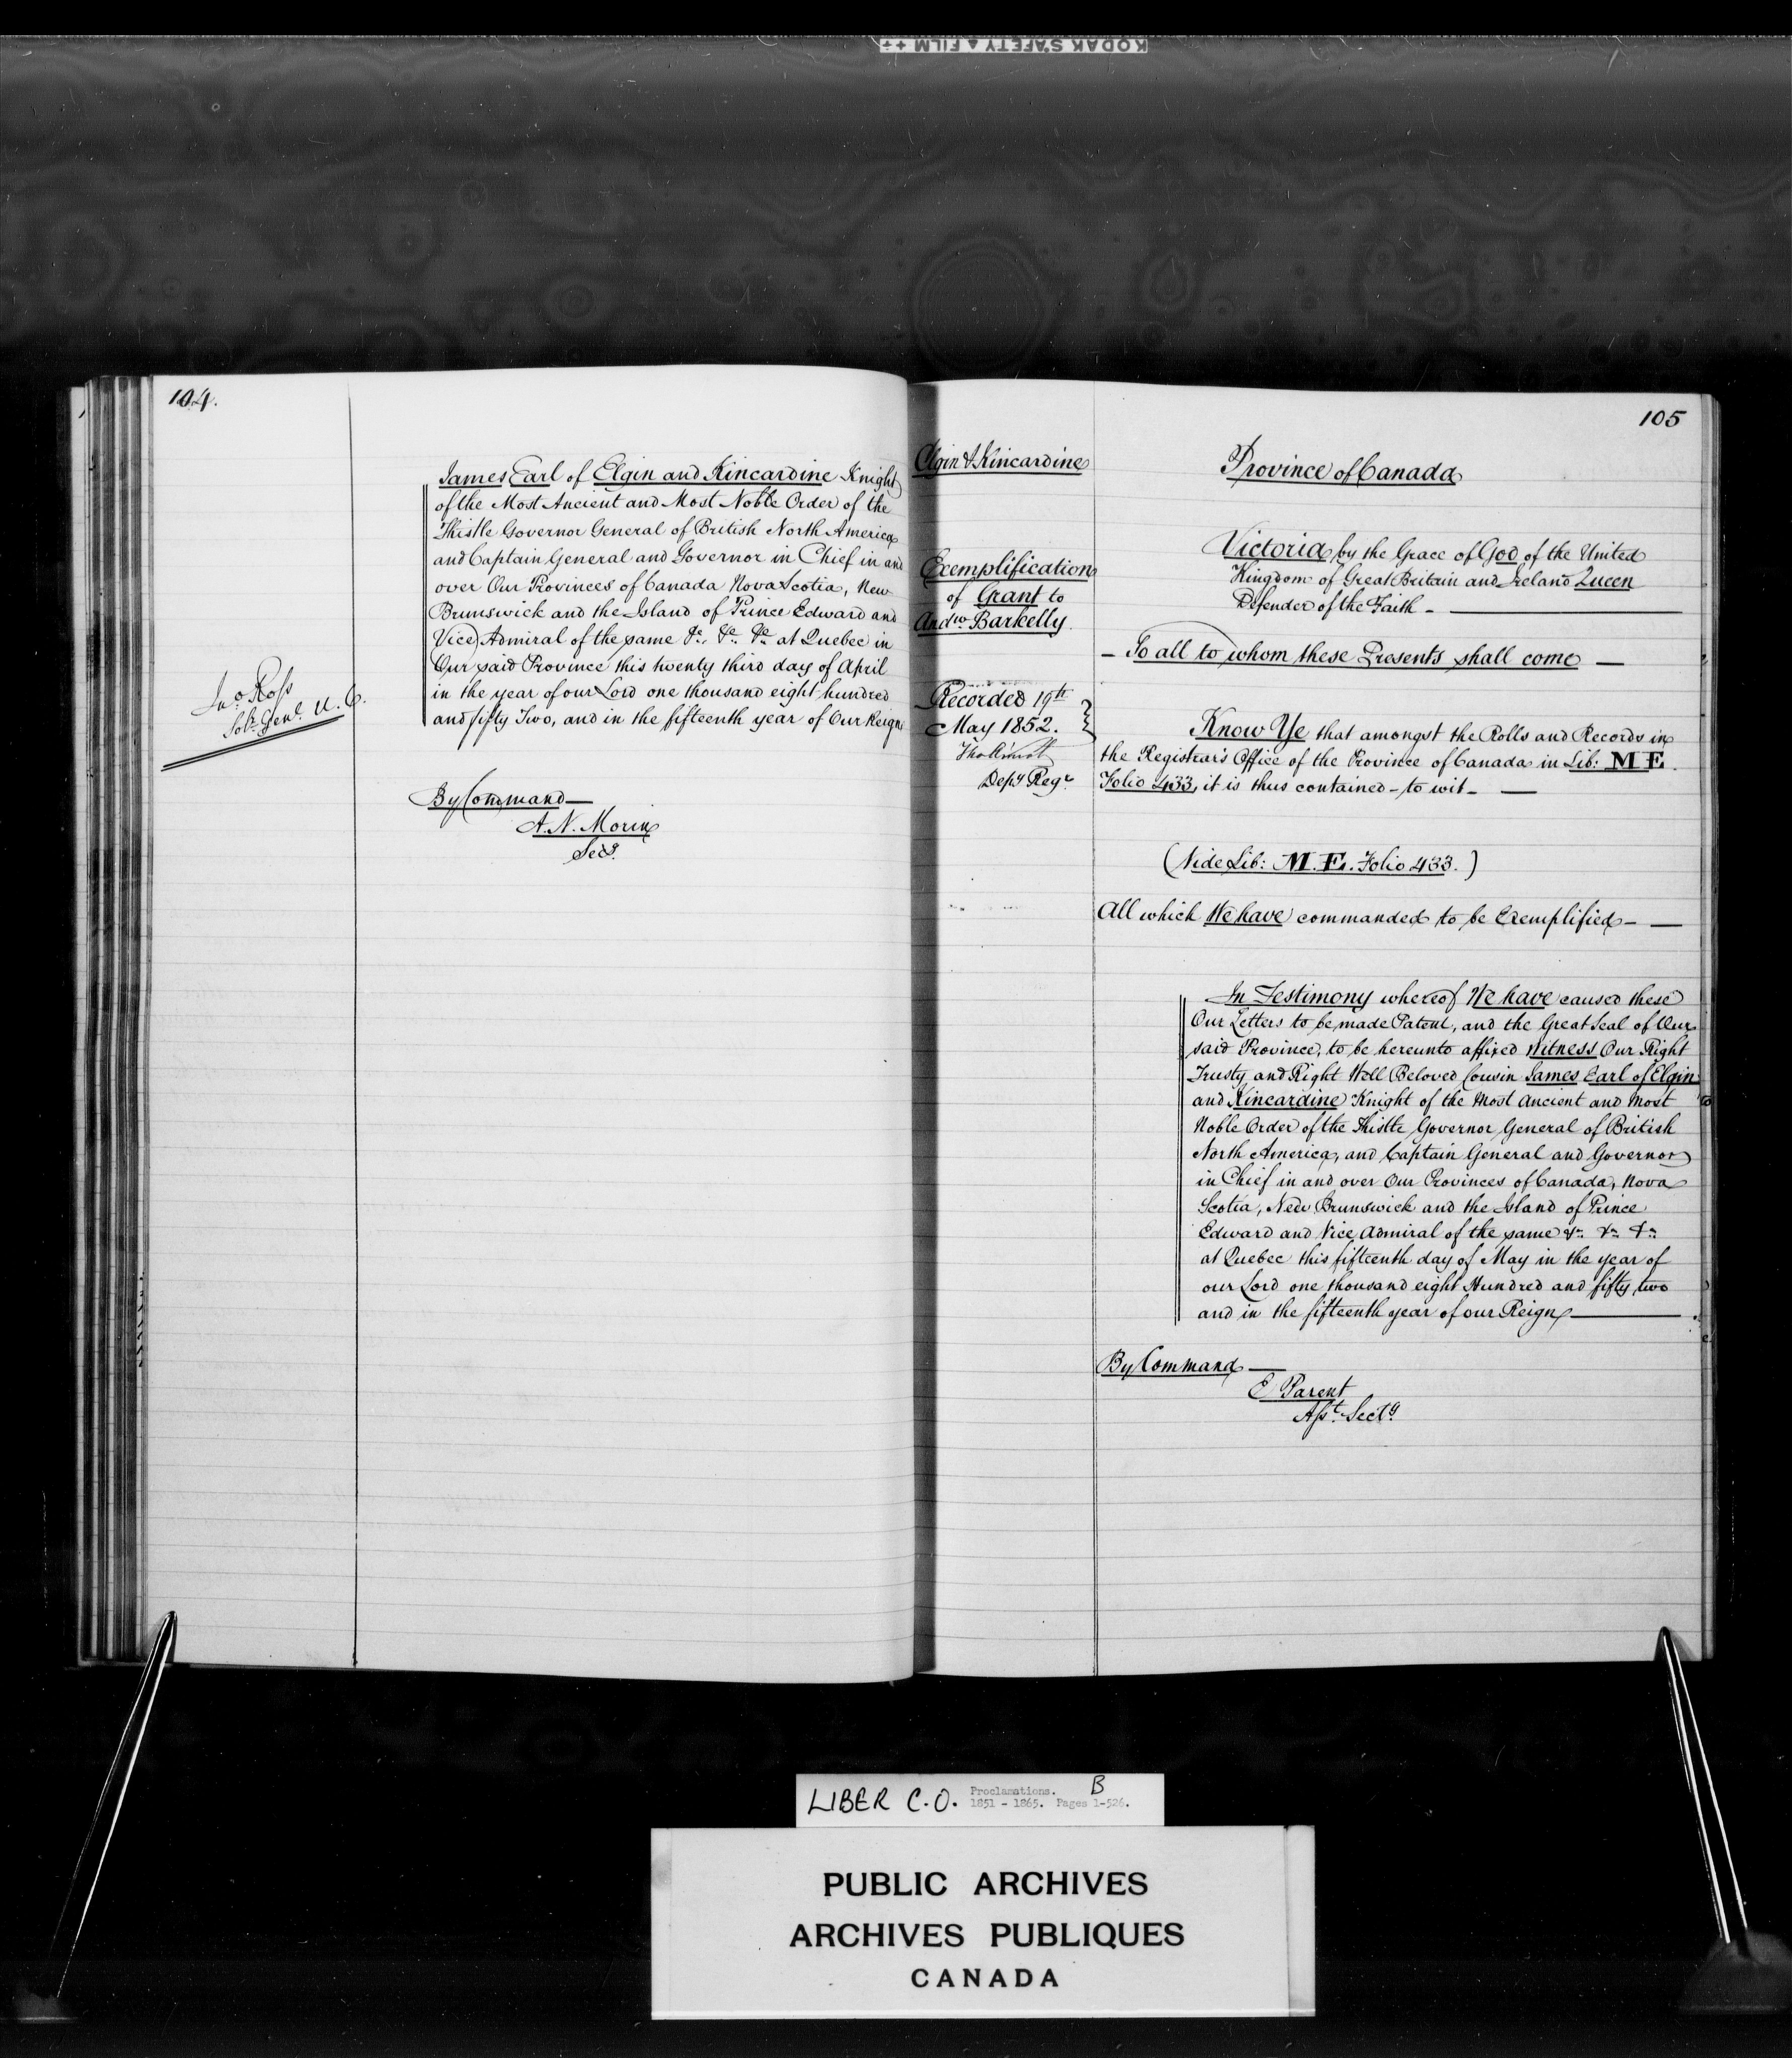 KODAK SAFETY ▲ FILM
104.
James Earl of Elgin and Kincardine Knight
of the Most Ancient and Most Noble Order of the
Thistle Governor General of British North America
and Captain General and Governor in Chief in and
over Our Provinces of Canada Nova Scotia, New
Brunswick and the Island of Prince Edward and
Vice Admiral of the same &c. &c. &c. at Quebec in
Our said Province this twenty third day of April
in the year of our Lord one thousand eight hundred
and fifty Two, and in the fifteenth year of Our Reign
Jno. Ross
Solr. Genl. U. C.
By Command —
A. N. Morin
Secy.
105
Elgin & Kincardine
Exemplification
of Grant to
Andw. Barkelly.
Recorded 19th
May 1852.
Depy Regr.
Province of Canada
Victoria by the Grace of God of the United
Kingdom of Great Britain and Ireland Queen
Defender of the Faith —
— To all to whom these Presents shall come —
Know Ye that amongst the Rolls and Records in
the Registrar's Office of the Province of Canada in Lib: M E
Folio 433, it is thus contained - to wit - —
(Vide Lib: M. E. Folio 433.)
All which We have commanded to be Exemplified - —
In Testimony whereof We have caused these
Our Letters to be made Patent, and the Great Seal of Our
said Province, to be hereunto affixed Witness Our Right
Trusty and Right Well Beloved Cousin James Earl of Elgin
and Kincardine Knight of the Most Ancient and Most
Noble Order of the Thistle Governor General of British
North America, and Captain General and Governor
in Chief in and over Our Provinces of Canada, Nova
Scotia, New Brunswick and the Island of Prince
Edward and Vice Admiral of the same &c. &c. &c.
at Quebec this fifteenth day of May in the year of
our Lord one thousand eight Hundred and fifty two
and in the fifteenth year of our Reign —
By Command —
E Parent
Asst. Secty.
LIBER C.O. Proclamations. B
1851 - 1865. Pages 1-526.
PUBLIC ARCHIVES
ARCHIVES PUBLIQUES
CANADA